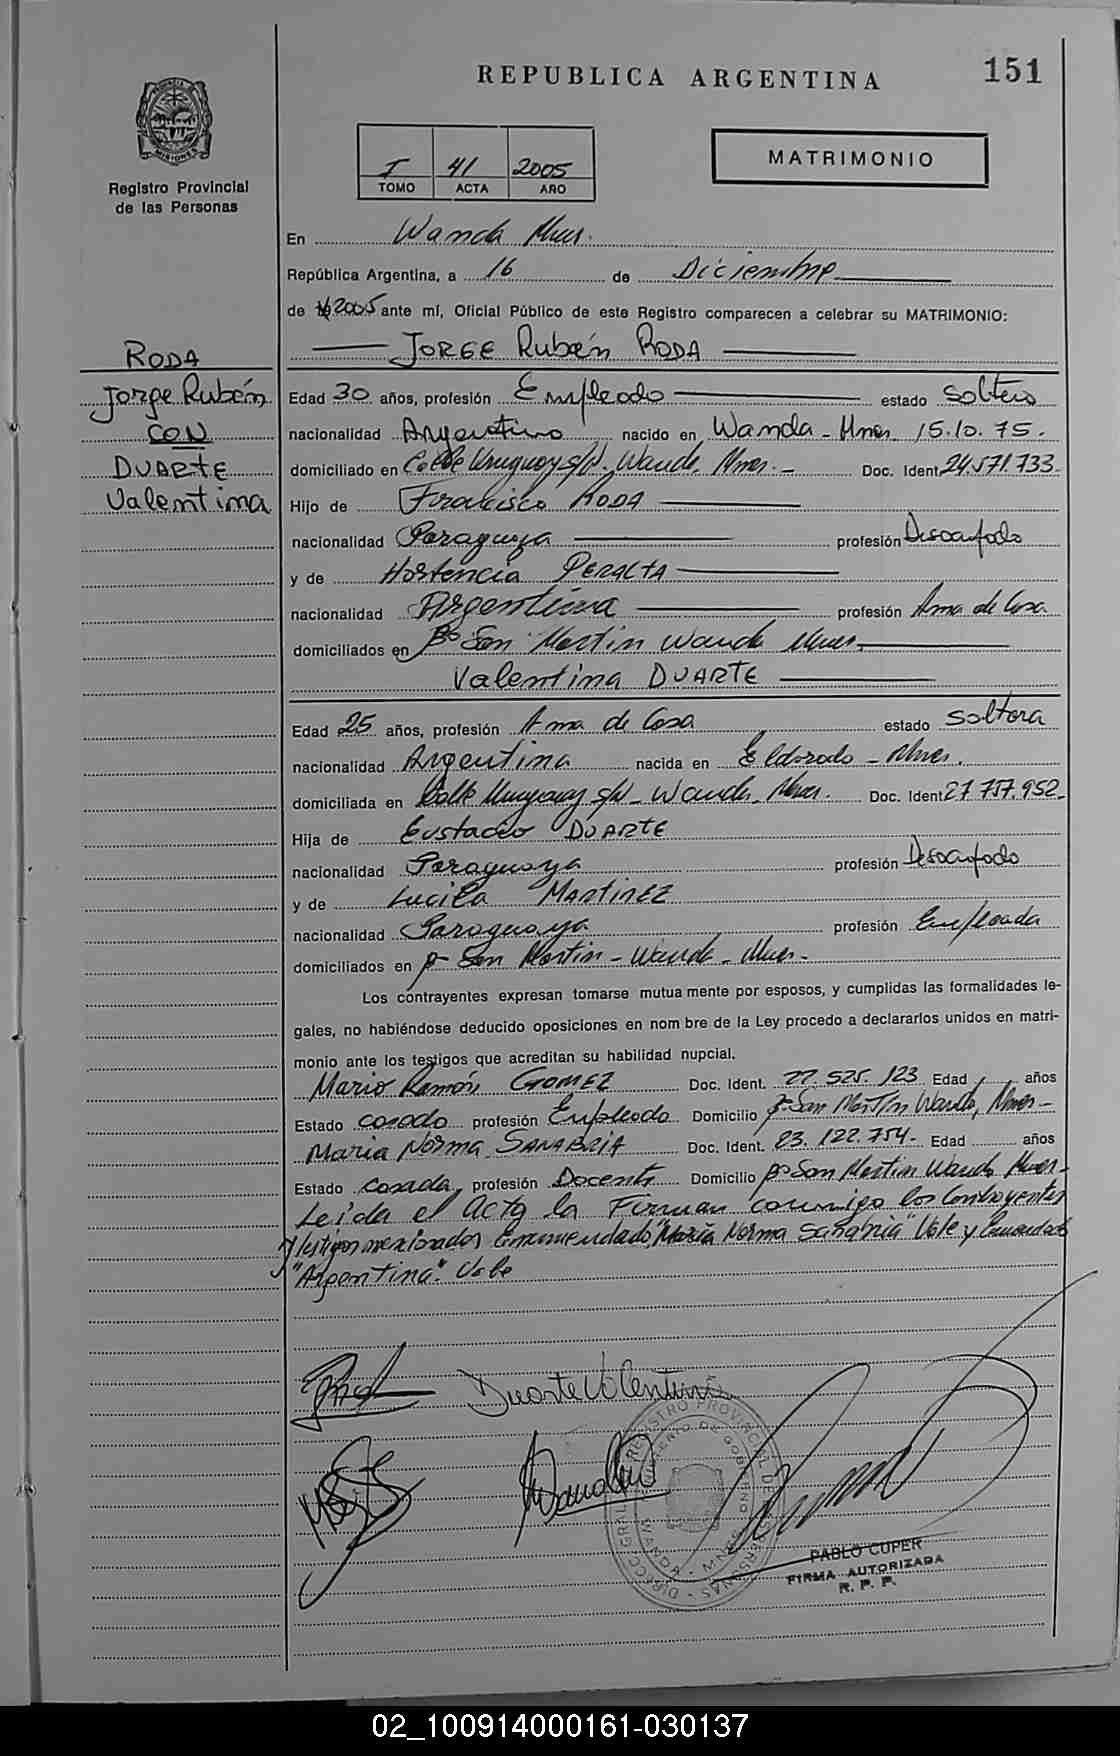 REPUBLICA ARGENTINA
151
Registro Provincial
de las Personas
I 41 2005
TOMO ACTA AÑO
MATRIMONIO
En Wanda Mnes.
República Argentina, a 16 de Diciembre
de 2005 ante mí, Oficial Público de este Registro comparecen a celebrar su MATRIMONIO:
JORGE Rubén RODA
RODA
Jorge Rubén
CON
DUARTE
Valentina
Edad 30 años, profesión Empleado estado soltero
nacionalidad Argentino nacido en Wanda - Mnes. 15.10.75.
domiciliado en Calle Uruguay s/N. Wanda. Mnes. - Doc. Ident. 24.571.733.
Hijo de Francisco RODA
nacionalidad Paraguaya profesión Desocupado
y de Hortencia PERALTA
nacionalidad Argentina profesión Ama de Casa
domiciliados en Bº San Martin Wanda Mnes.
Valentina DUARTE
Edad 25 años, profesión Ama de Casa estado soltera
nacionalidad Argentina nacida en Eldorado - Mnes.
domiciliada en Calle Uruguay s/N - Wanda. Mnes. Doc. Ident. 27.757.952.
Hija de Eustacio DUARTE
nacionalidad Paraguaya profesión Desocupado
y de Lucila MARTINEZ
nacionalidad Paraguaya profesión Empleada
domiciliados en San Martin - Wanda - Mnes.
Los contrayentes expresan tomarse mutua mente por esposos, y cumplidas las formalidades le-
gales, no habiéndose deducido oposiciones en nom bre de la Ley procedo a declararlos unidos en matri-
monio ante los testigos que acreditan su habilidad nupcial.
Mario Ramón GOMEZ Doc. Ident. 27.525.123 Edad años
Estado casado profesión Empleado Domicilio San Martin Wanda, Mnes -
Maria Norma SANABRIA Doc. Ident. 23.122.754. Edad años
Estado casada, profesión Docente Domicilio Bº San Martin Wanda Mnes -
Leida el Acta la Firman conmigo los Contrayentes
y testigos mencionados Enmendado, "Maria Norma Sanabria" Vale y Enmendado
"Argentina". Vale
Duarte Valentina
PABLO CUPER
FIRMA AUTORIZADA
R. P. P.
02_100914000161-030137